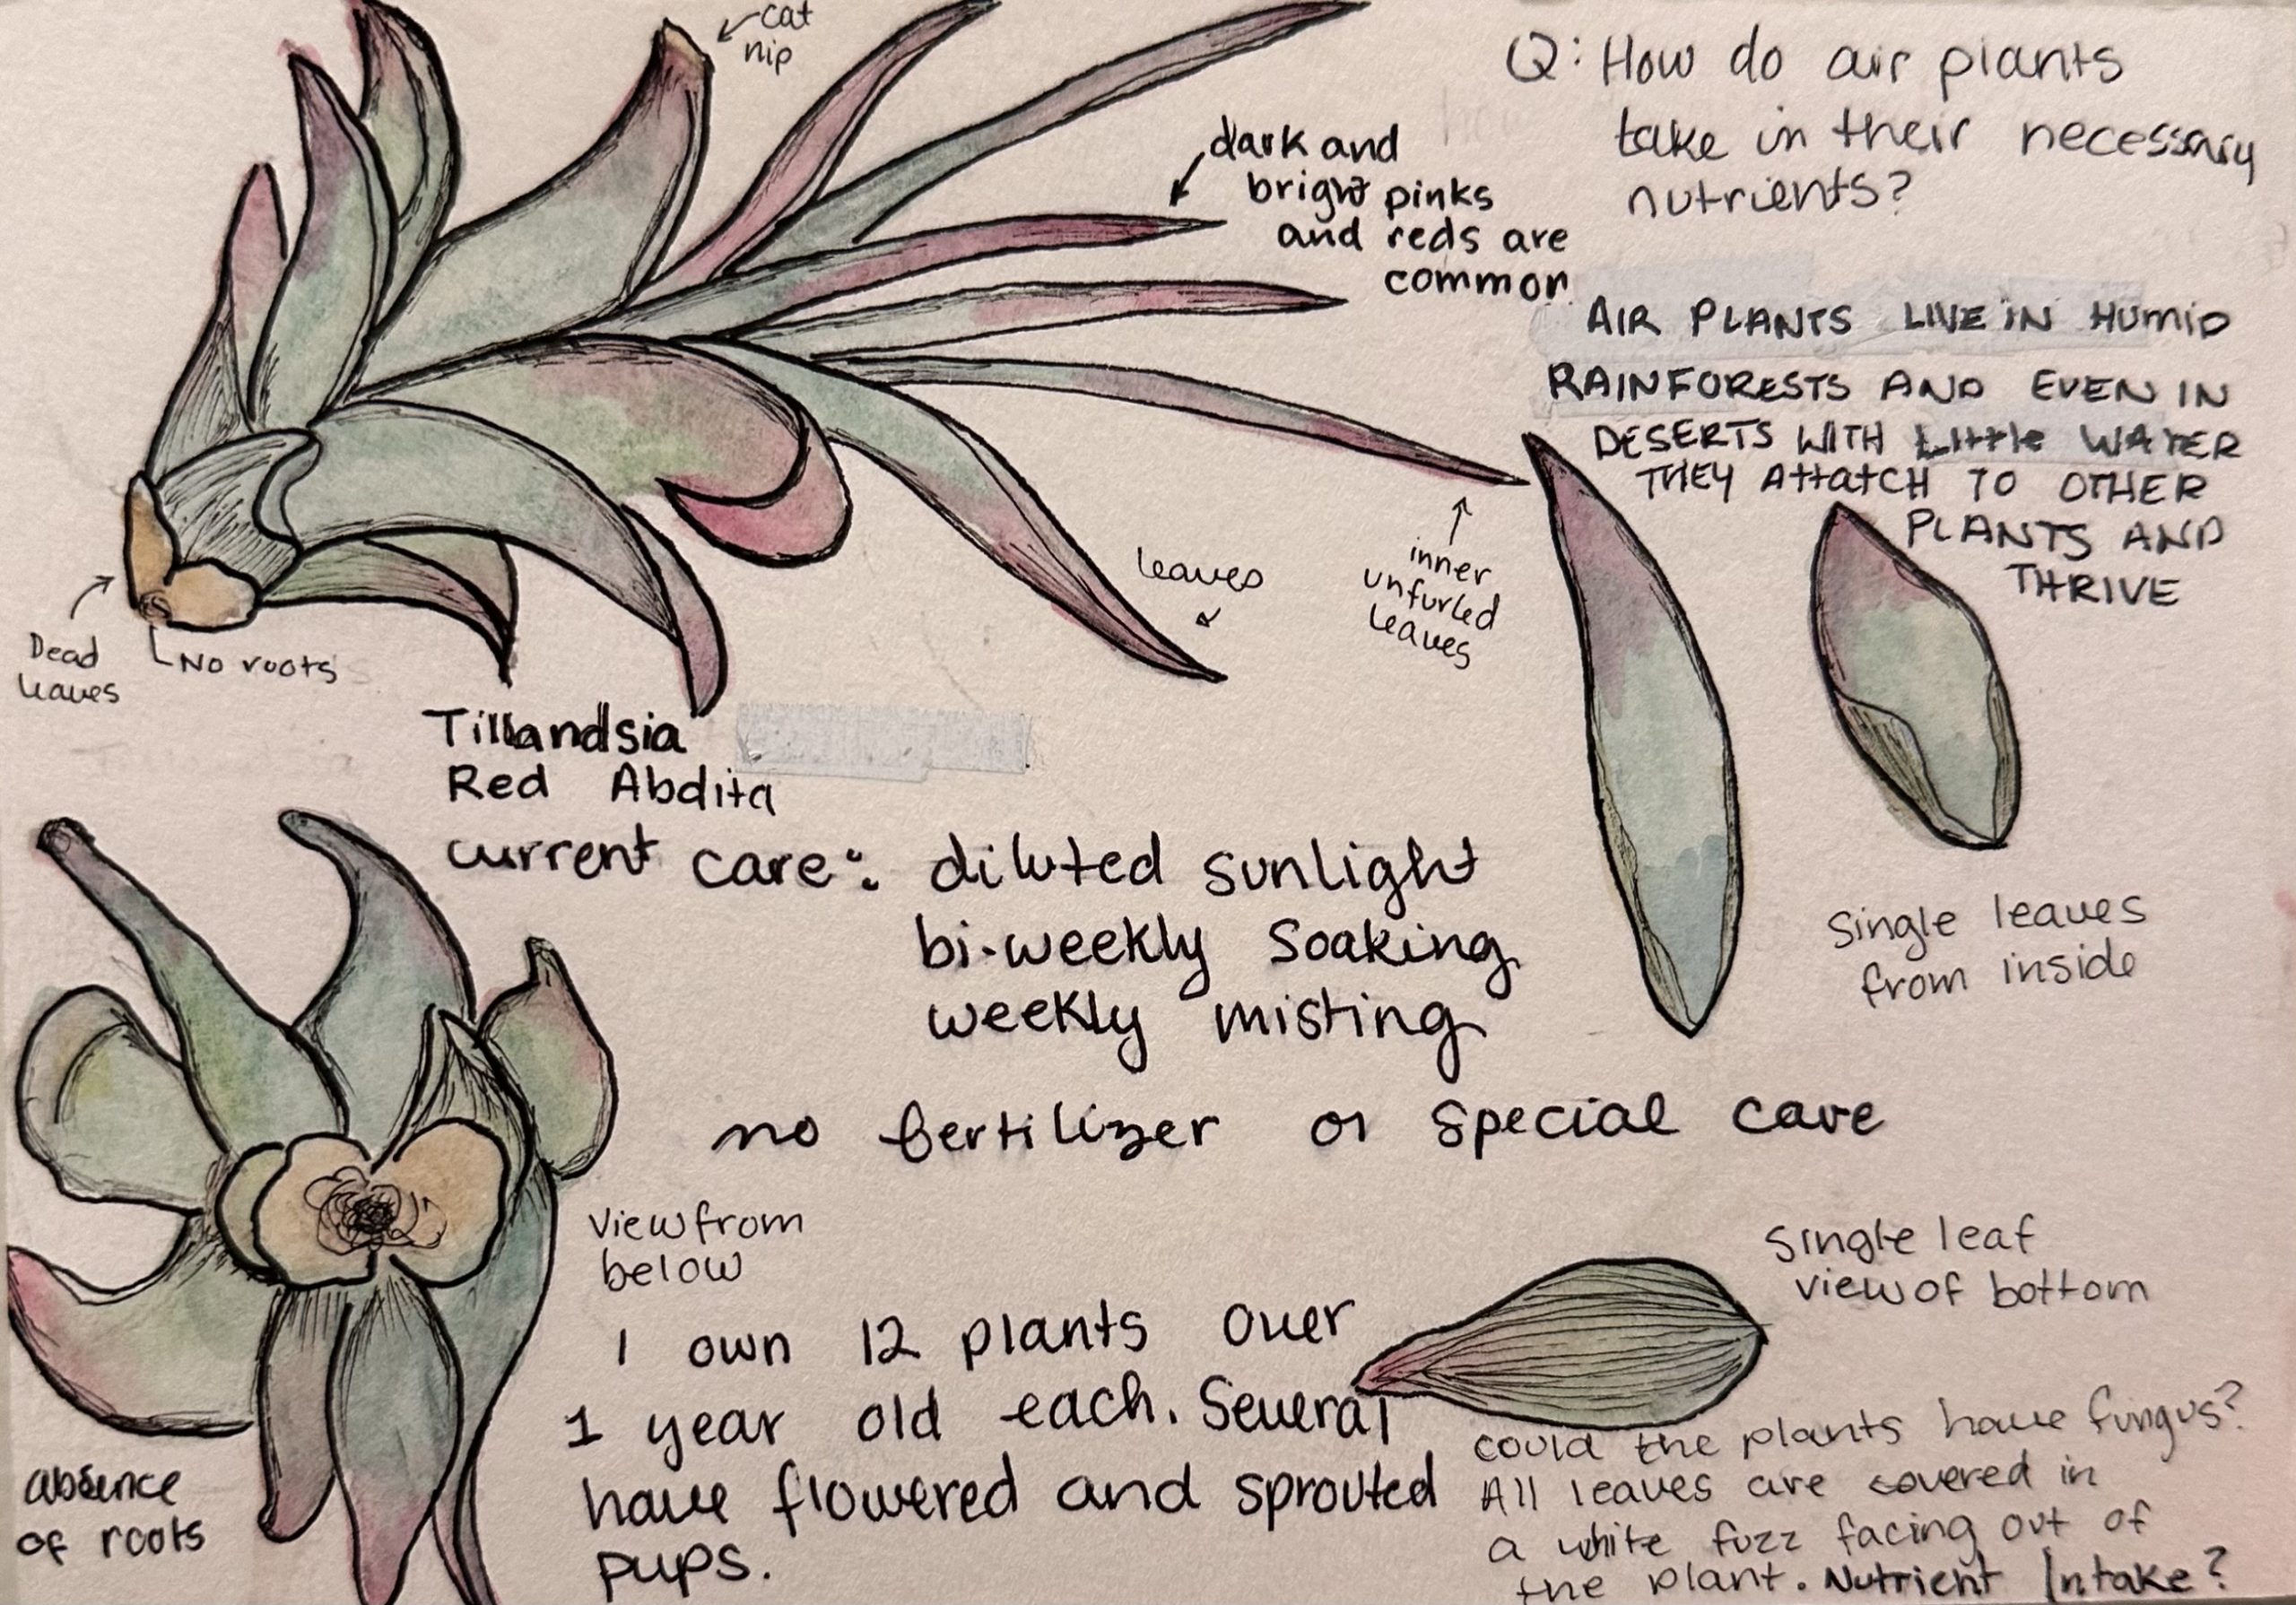 cat
nip
Q: How do air plants
take in their necessary
nutrients?
dark and
bright pinks
and reds are
common
AIR PLANTS LIVE IN HUMID
RAINFORESTS AND EVEN IN
DESERTS WITH Little WATER
THEY AttatCH TO OTHER
PLANTS AND
THRIVE
leaves
inner
unfurled
leaves
Dead
leaves
No roots
Tillandsia
Red Abdita
current care: diluted sunlight
bi-weekly soaking
weekly misting
no fertilizer or special care
Single leaves
from inside
View from
below
Single leaf
view of bottom
I own 12 plants over
1 year old each. Several
have flowered and sprouted
pups.
absence
of roots
could the plants have fungus?
All leaves are covered in
a white fuzz facing out of
the plant. Nutrient Intake?